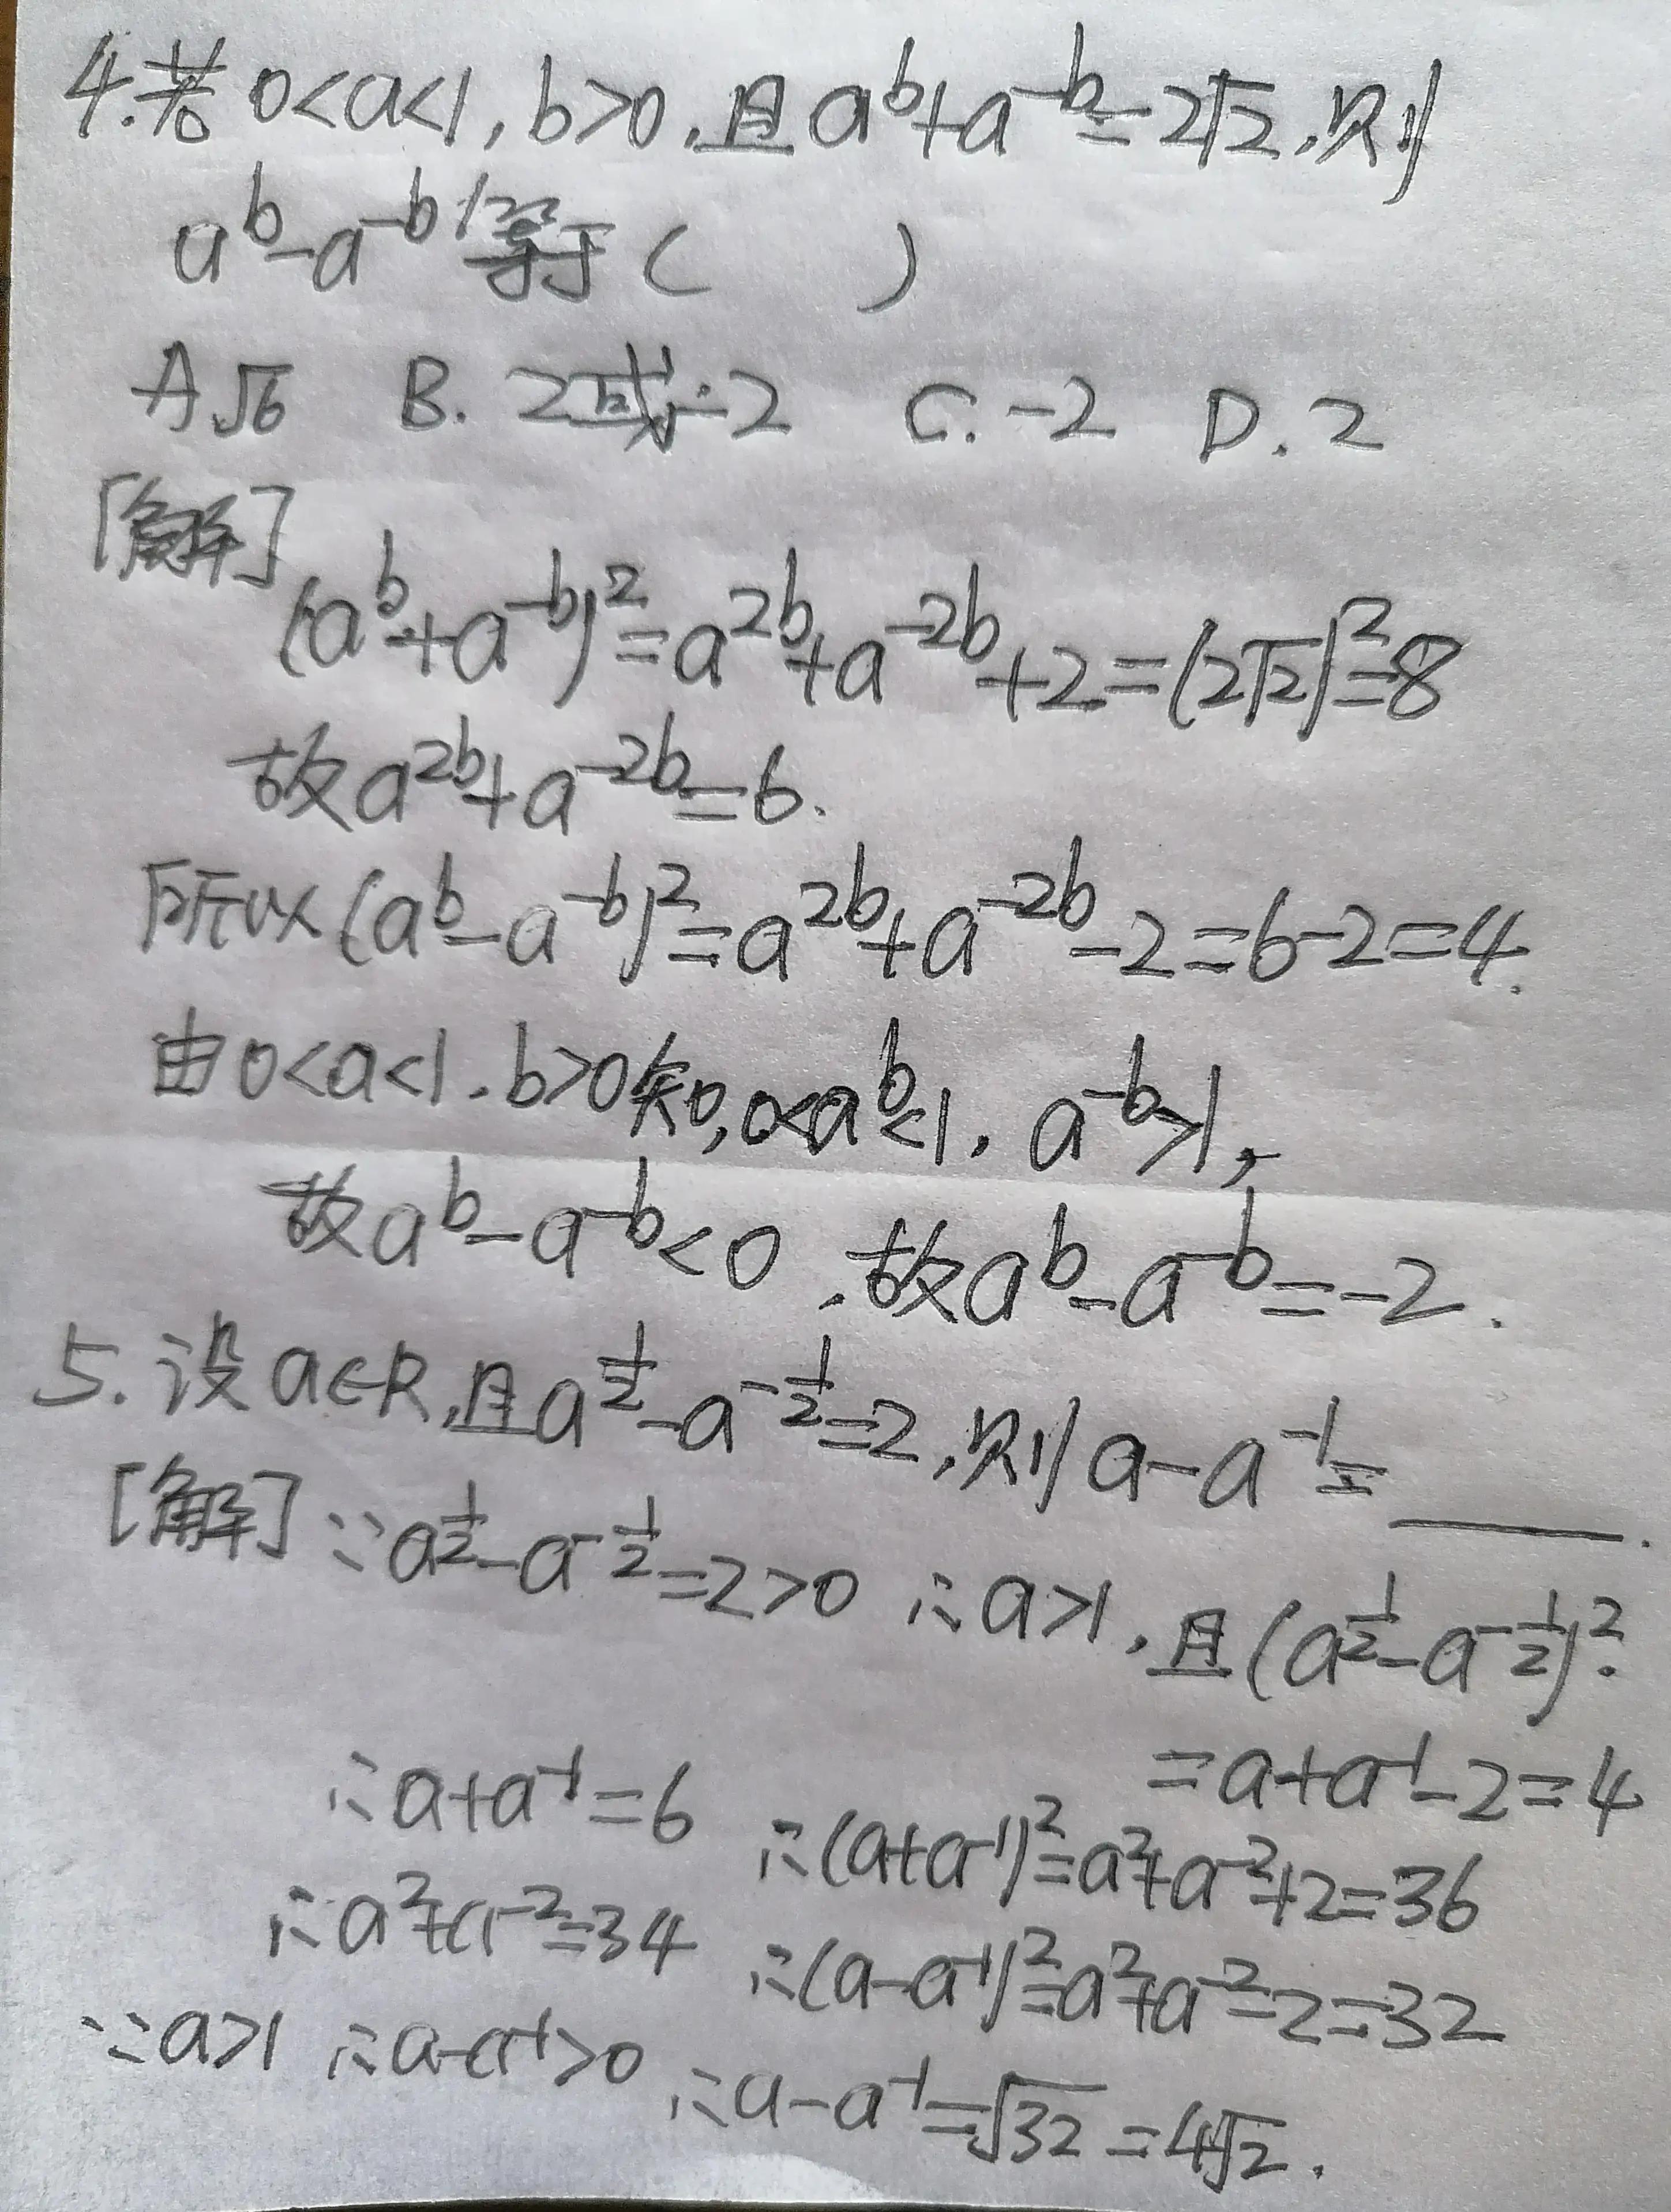 4.若0<a<1,b>0,且a^b+a^-b=2√2,则
a^b-a^-b等于( )
A.√6 B. 2或-2 C.-2 D.2
[解]
(a^b+a^-b)²=a^2b+a^-2b+2=(2√2)²=8
故a^2b+a^-2b=6.
所以(a^b-a^-b)²=a^2b+a^-2b-2=6-2=4.
由0<a<1,b>0知,0<a^b<1,a^-b>1,
故a^b-a^-b<0,故a^b-a^-b=-2.
5.设a∈R,且a^½-a^-½=2,则a-a^-1=____.
[解]∵a^½-a^-½=2>0 ∴a>1,且(a^½-a^-½)²
=a+a^-1-2=4
∴a+a^-1=6 ∴(a+a^-1)²=a²+a^-2+2=36
∴a²+a^-2=34 ∴(a-a^-1)²=a²+a^-2-2=32
∵a>1 ∴a-a^-1>0 ∴a-a^-1=√32=4√2.